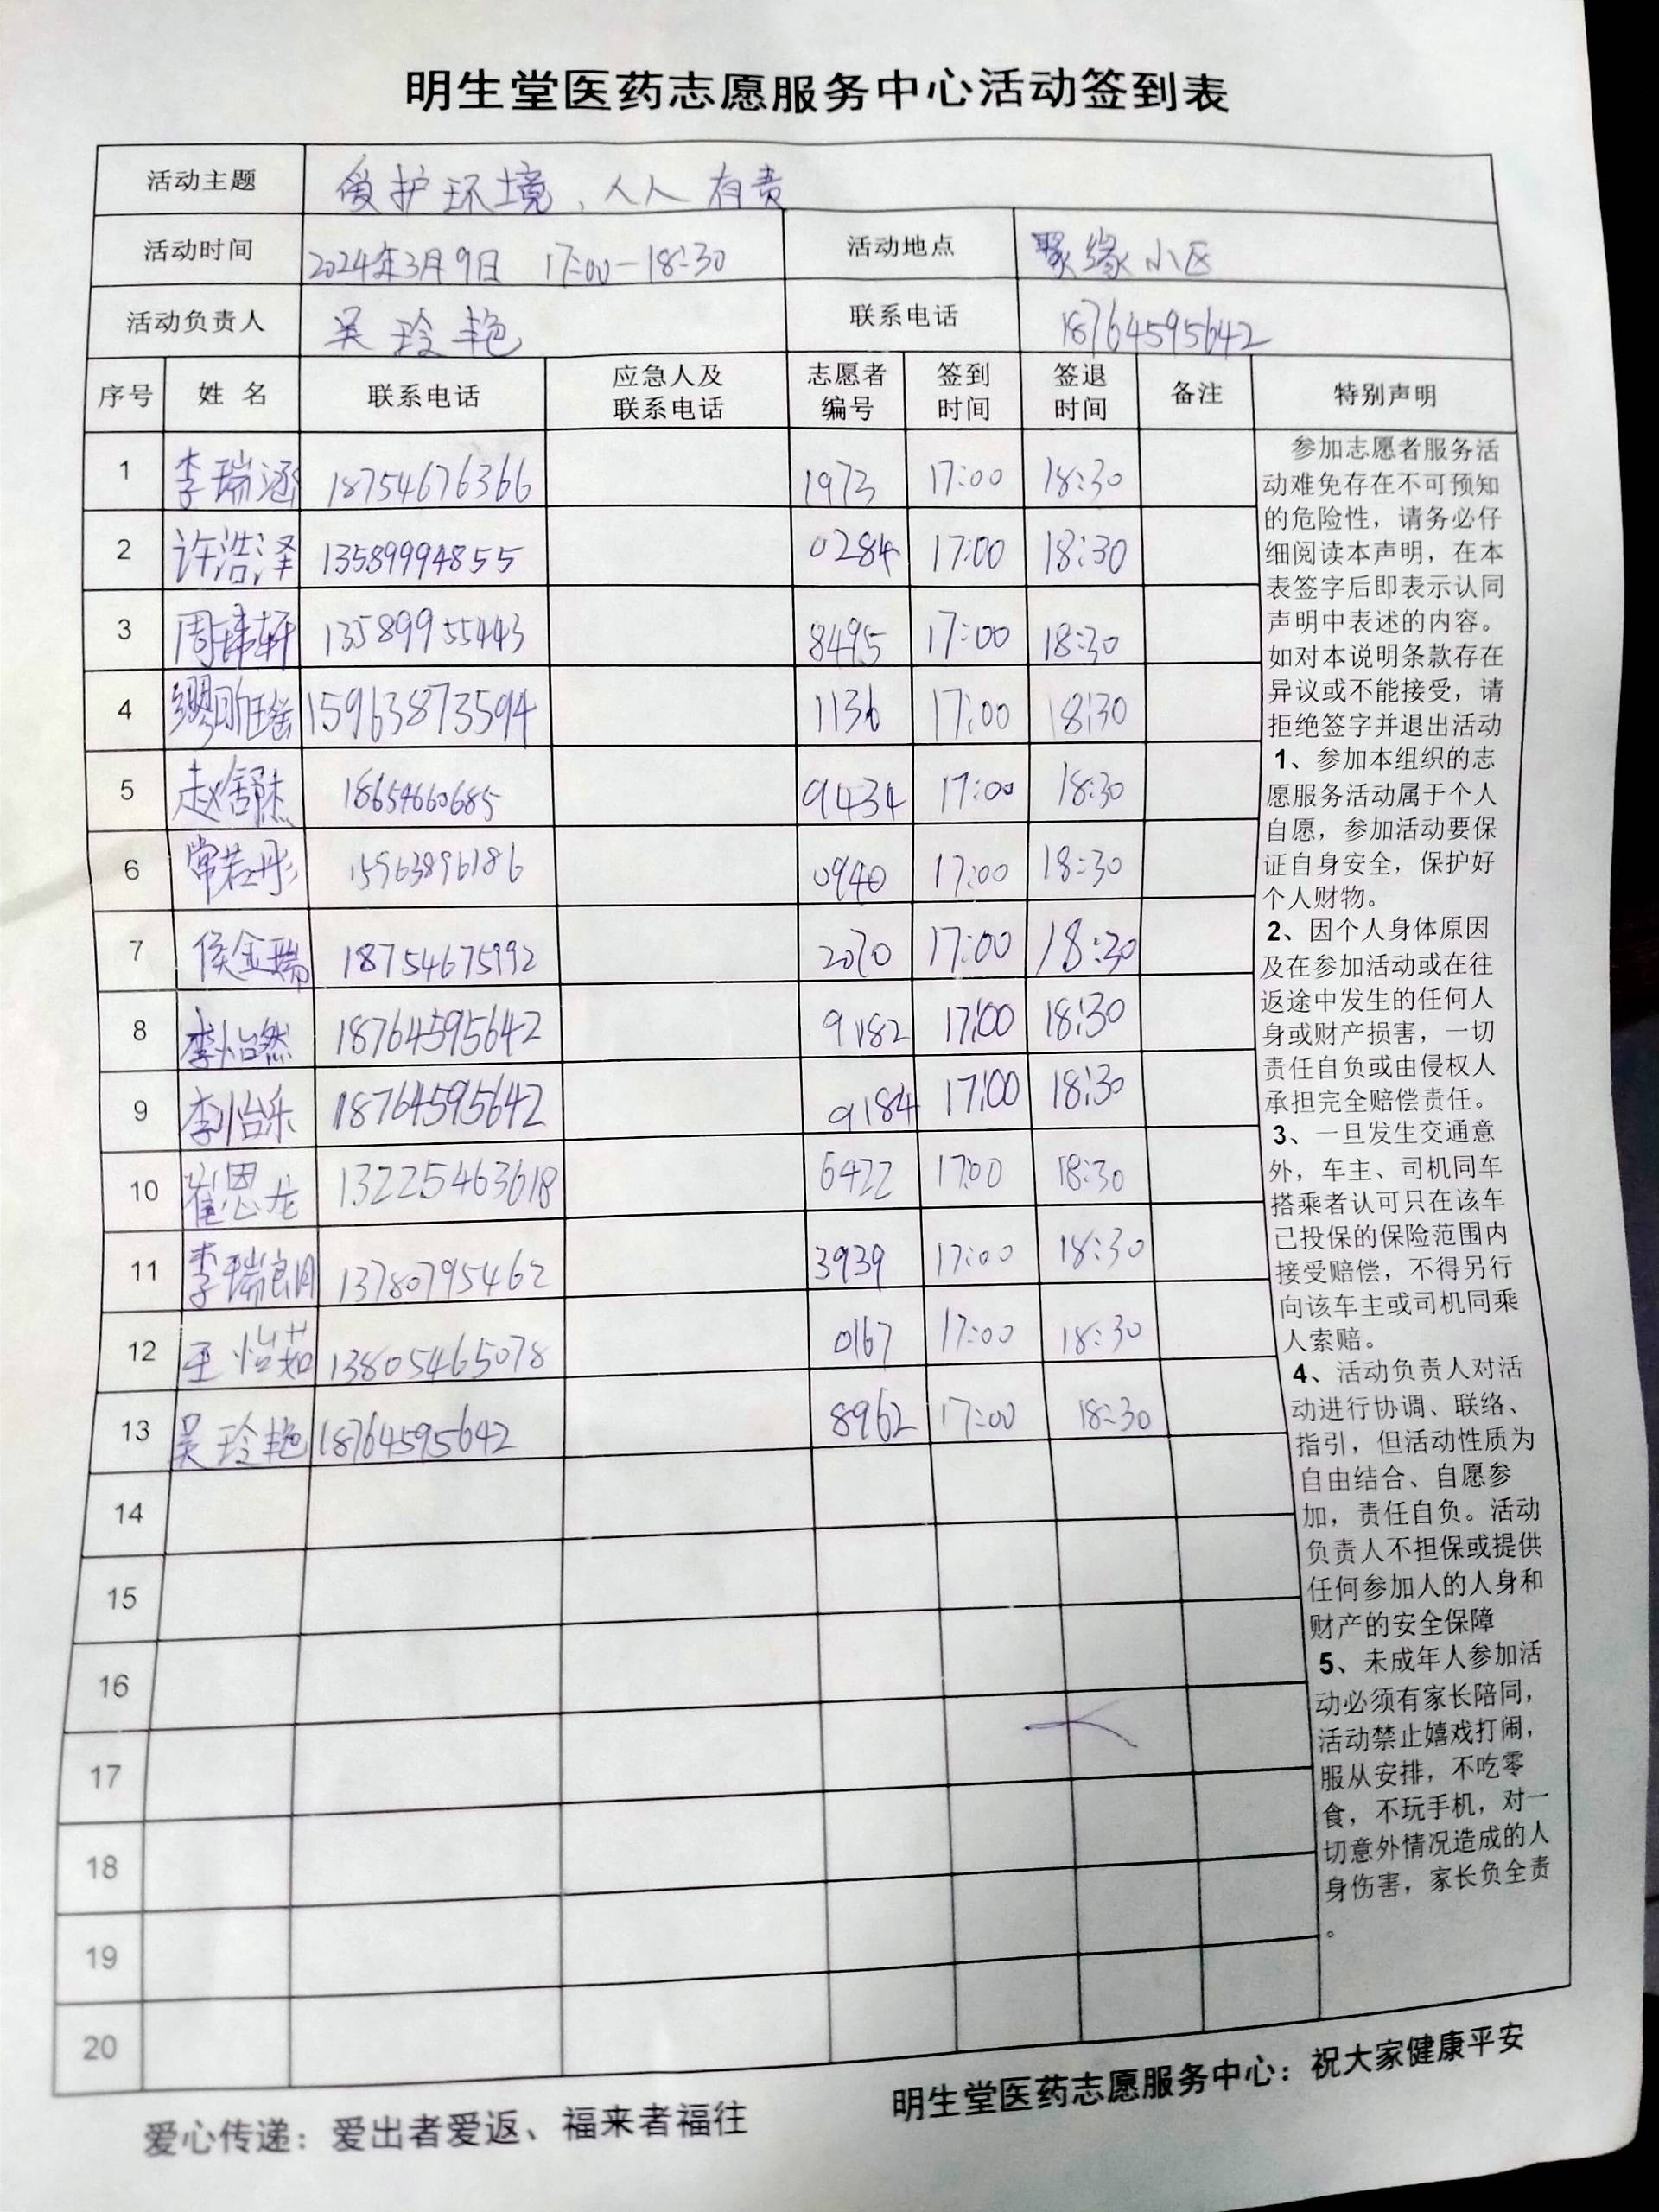 明生堂医药志愿服务中心活动签到表
活动主题 爱护环境、人人有责
活动时间 2024年3月9日 17:00-18:30 活动地点 聚缘小区
活动负责人 吴玲艳 联系电话 18764595642
序号 姓名 联系电话 应急人及联系电话 志愿者编号 签到时间 签退时间 备注 特别声明
1 李瑞涵 18754676366 1973 17:00 18:30
2 许浩泽 13589994855 0284 17:00 18:30
3 周 轩 13589955443 8495 17:00 18:30
4 15963873594 1136 17:00 18:30
5 赵舒杰 18654660685 9434 17:00 18:30
6 常若彤 15963896186 0940 17:00 18:30
7 侯金瑞 18754675992 2070 17:00 18:30
8 李怡然 18764595642 9182 17:00 18:30
9 李怡乐 18764595642 9184 17:00 18:30
10 崔恩龙 13225463618 6422 17:00 18:30
11 李瑞朗 13780795462 3939 17:00 18:30
12 王怡茹 13805465078 0167 17:00 18:30
13 吴玲艳 18764595642 8962 17:00 18:30
14
15
16
17
18
19
20
参加志愿者服务活
动难免存在不可预知
的危险性，请务必仔
细阅读本声明，在本
表签字后即表示认同
声明中表述的内容。
如对本说明条款存在
异议或不能接受，请
拒绝签字并退出活动
1、参加本组织的志
愿服务活动属于个人
自愿，参加活动要保
证自身安全，保护好
个人财物。
2、因个人身体原因
及在参加活动或在往
返途中发生的任何人
身或财产损害，一切
责任自负或由侵权人
承担完全赔偿责任。
3、一旦发生交通意
外，车主、司机同车
搭乘者认可只在该车
己投保的保险范围内
接受赔偿，不得另行
向该车主或司机同乘
人索赔。
4、活动负责人对活
动进行协调、联络、
指引，但活动性质为
自由结合、自愿参
加，责任自负。活动
负责人不担保或提供
任何参加人的人身和
财产的安全保障
5、未成年人参加活
动必须有家长陪同，
活动禁止嬉戏打闹，
服从安排，不吃零
食，不玩手机，对一
切意外情况造成的人
身伤害，家长负全责
。
爱心传递：爱出者爱返、福来者福往
明生堂医药志愿服务中心：祝大家健康平安